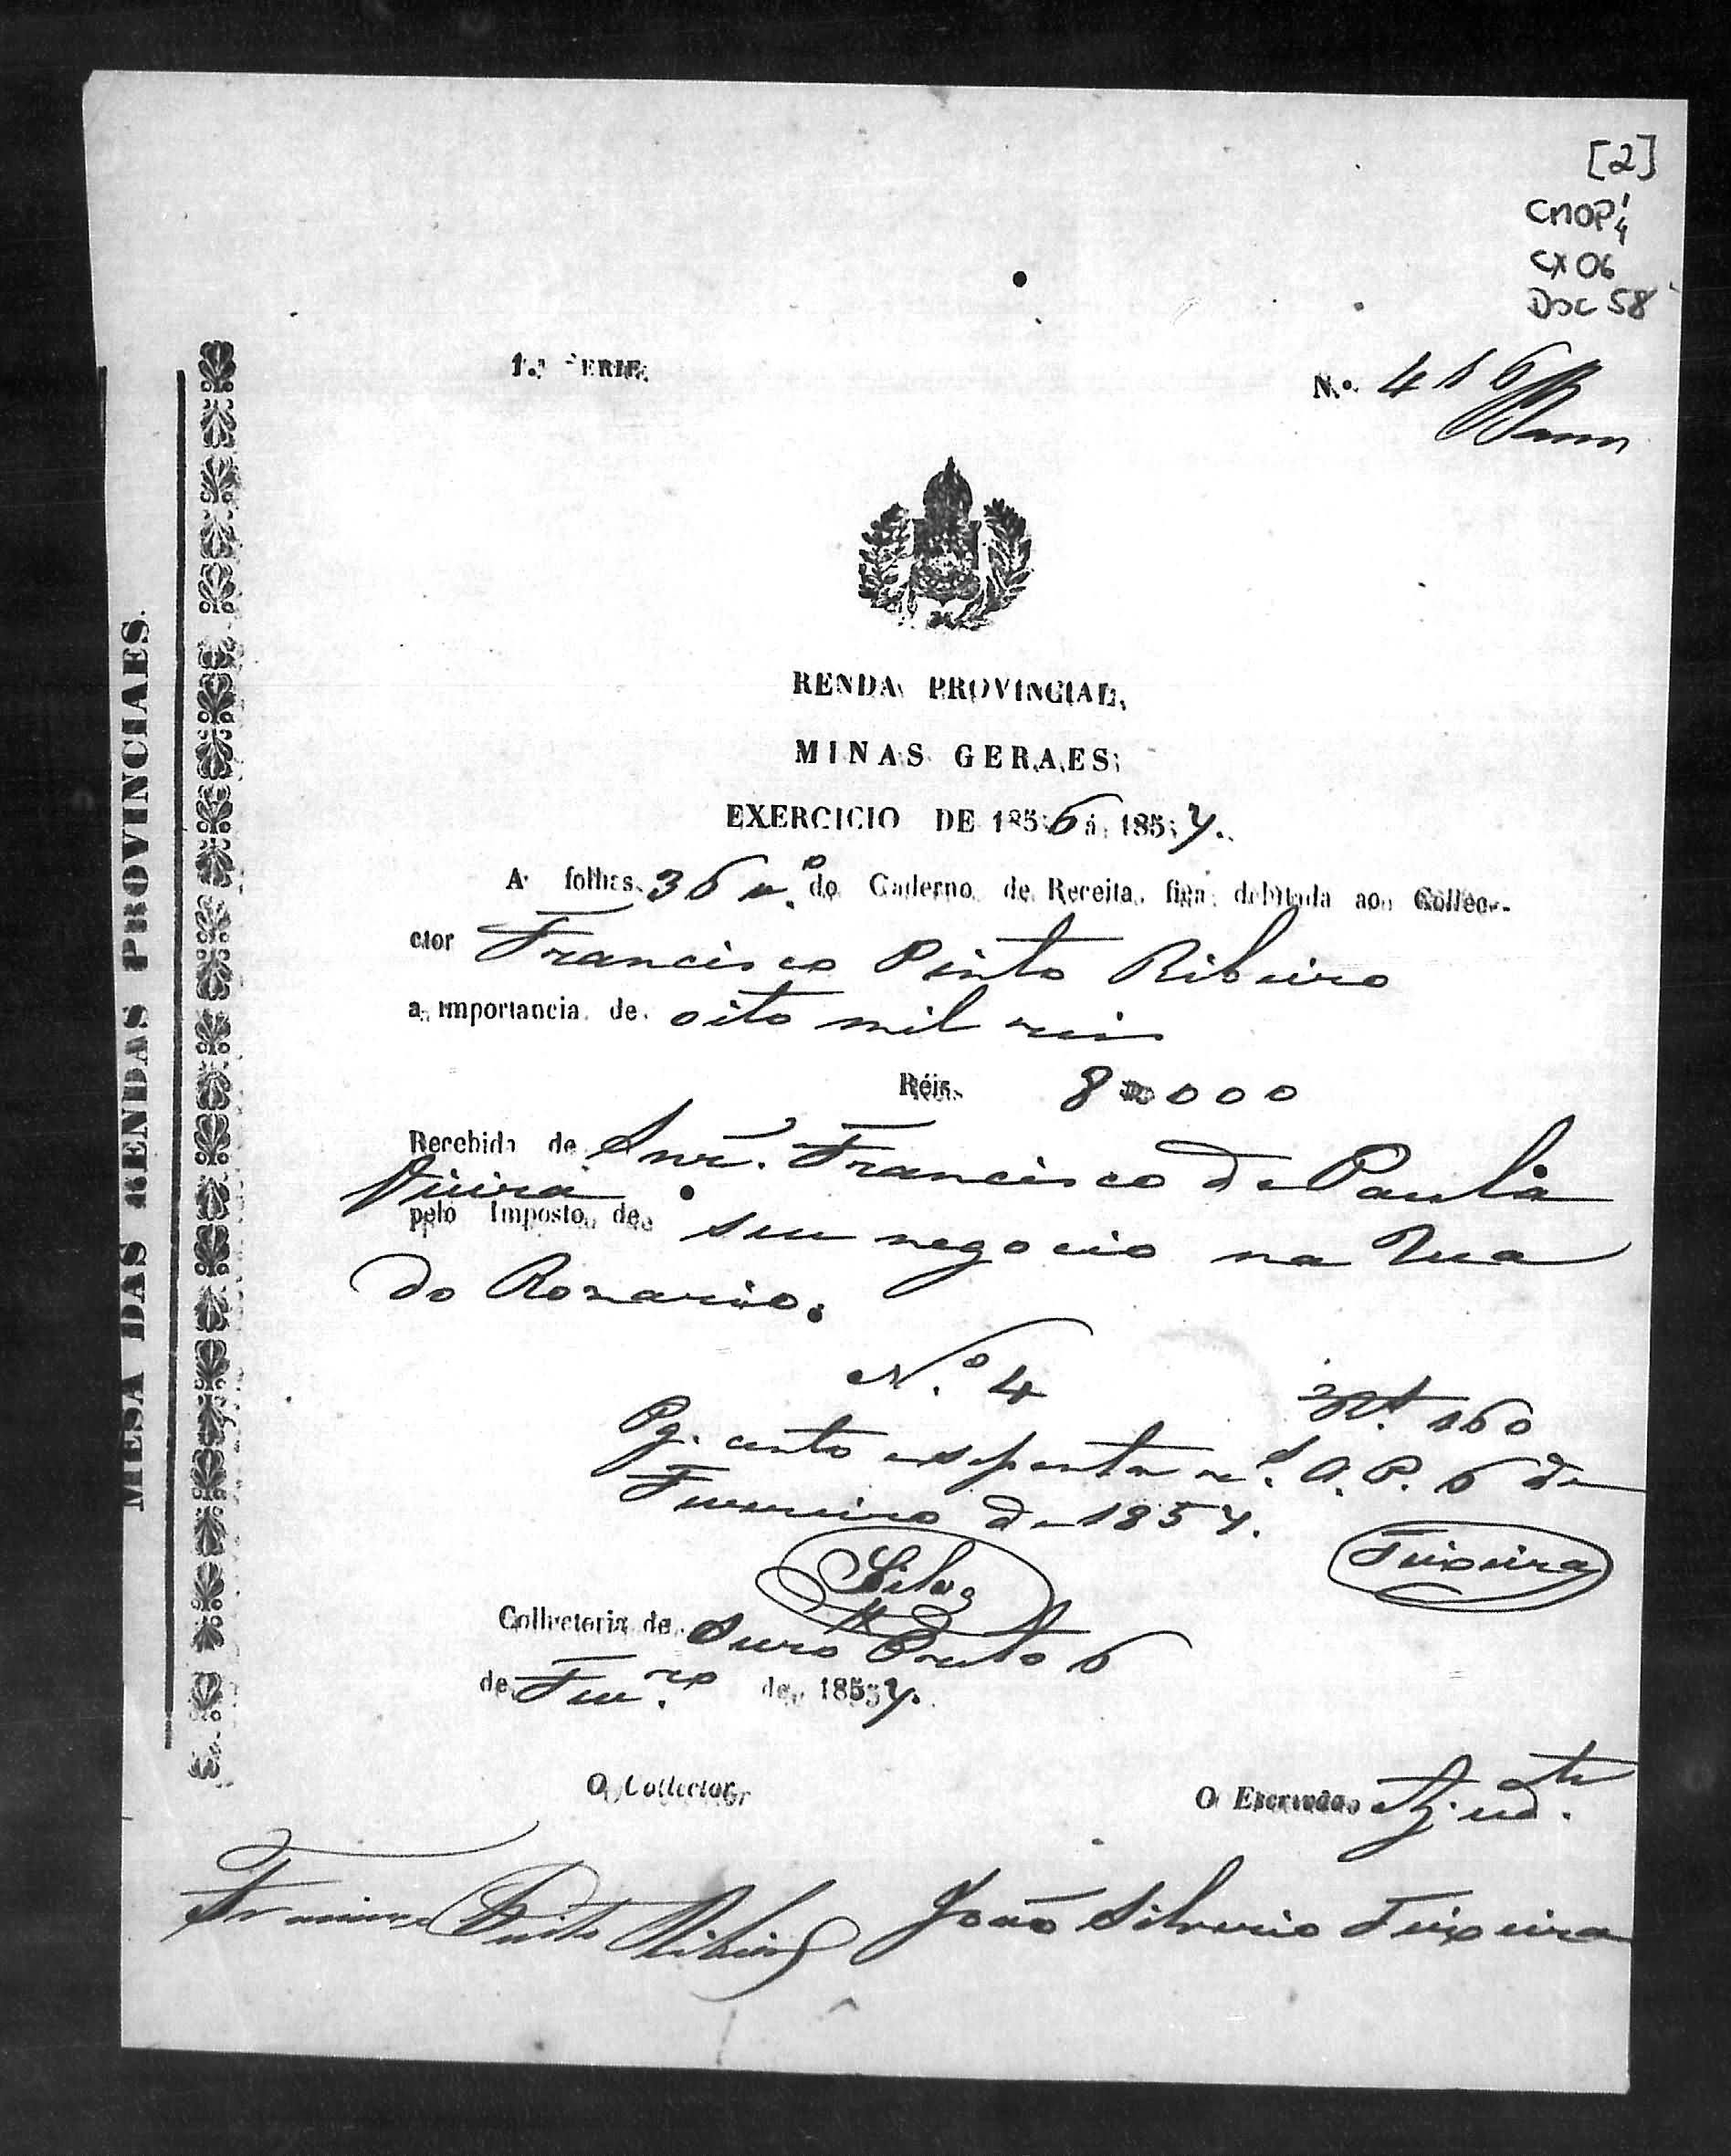 [2]
CMOP
CX 06
Doc 58
1.ª SERIE.
N.º 416
RENDA PROVINCIAL,
MINAS GERAES;
EXERCICIO DE 1856 á 1857.
A folhas 36 v.º do Caderno de Receita fica debitada ao Collec-
ctor Francisco Pinto Ribeiro
a importancia de oito mil reis
Réis 8 000
Recebida de Snr. Francisco de Paula
Vieira
pelo Imposto de seu negocio na Rua
do Rozario.
N.º 4
160
Pg. cento e secenta r.s O. P. 6 de
Fevereiro de 1857.
Silva
Teixeira
Collectoria de Ouro Preto 6
de Fev.ro de 1857.
O Collector
O Escrivão Ajud.te
Francisco Pinto Ribeiro
João Silverio Teixeira
MESA DAS RENDAS PROVINCIAES.